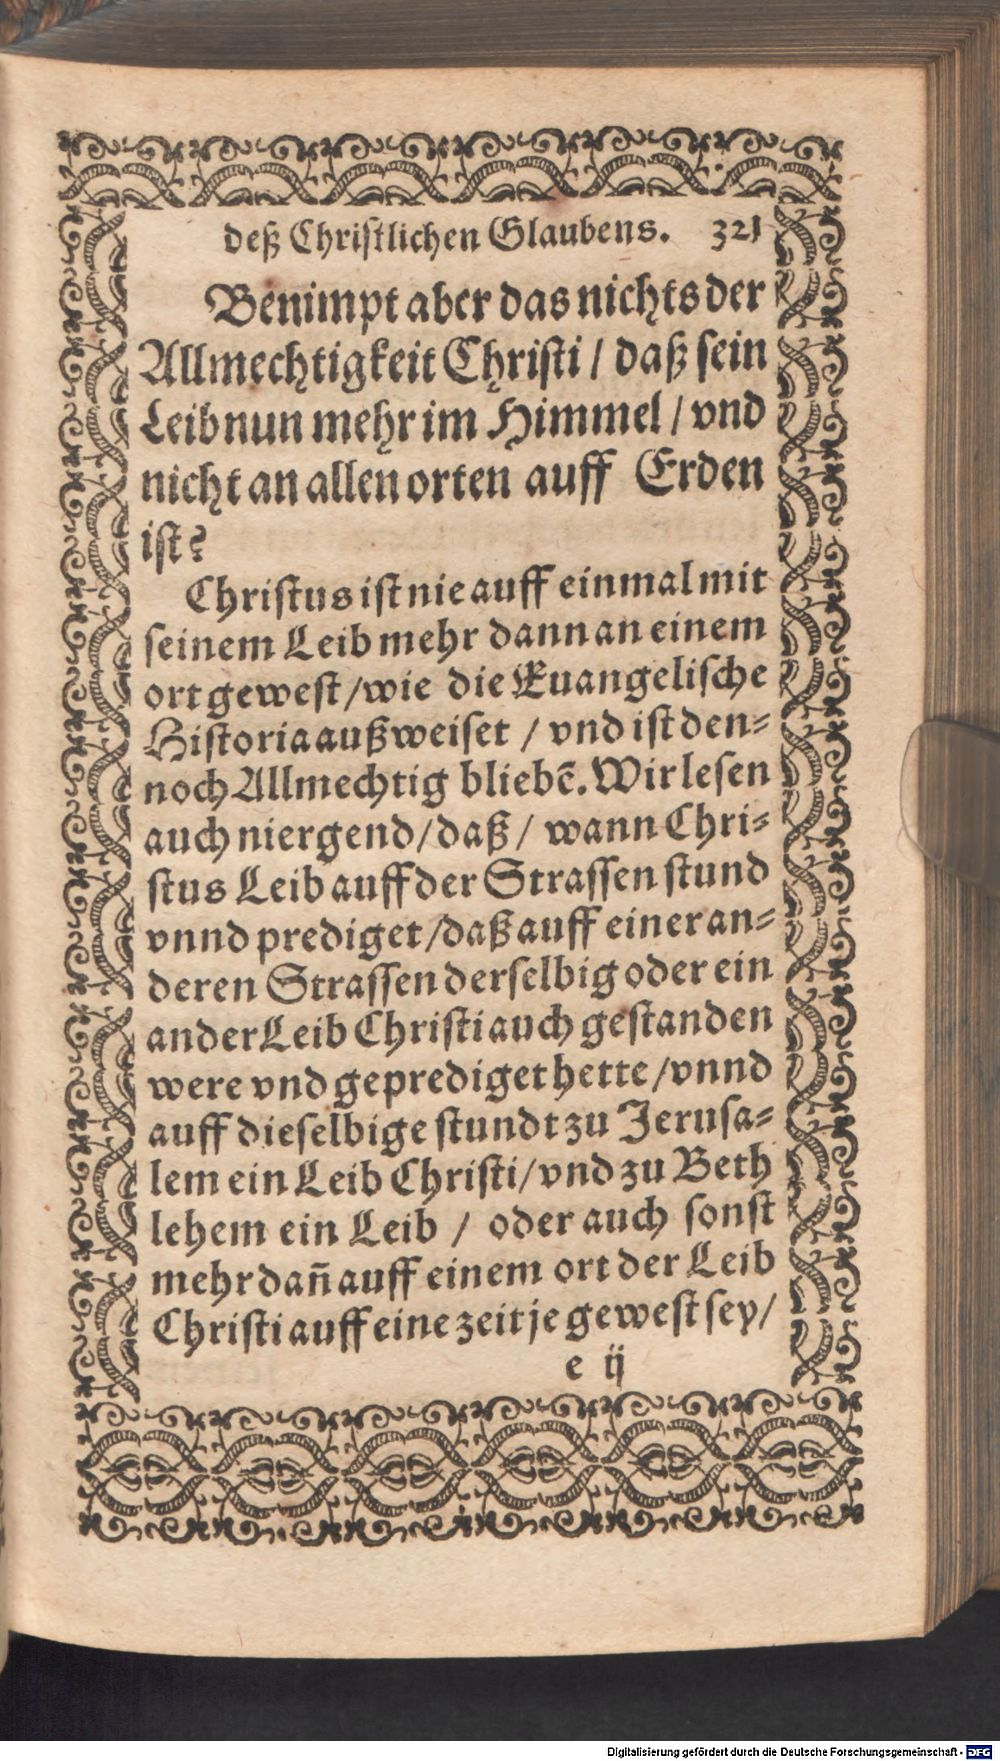 deß Christlichen Glaubens. 321
Benimpt aber das nichts der
Allmechtigkeit Christi / daß sein
Leib nun mehr im Himmel / vnd
nicht an allen orten auff Erden
ist?
Christus ist nie auff einmal mit
seinem Leib mehr dann an einem
ort gewest/wie die Euangelische
Historia außweiset / vnd ist den⸗
noch Allmechtig bliebē. Wir lesen
auch niergend/daß/ wann Chri⸗
stus Leib auff der Strassen stund
vnnd prediget/daß auff einer an⸗
deren Strassen derselbig oder ein
ander Leib Christi auch gestanden
were vnd geprediget hette/vnnd
auff dieselbige stundt zu Jerusa⸗
lem ein Leib Christi/vnd zu Beth
lehem ein Leib / oder auch sonst
mehr dañ auff einem ort der Leib
Christi auff eine zeit je gewest sey/
e ij
Digitalisierung gefördert durch die Deutsche Forschungsgemeinschaft - DFG